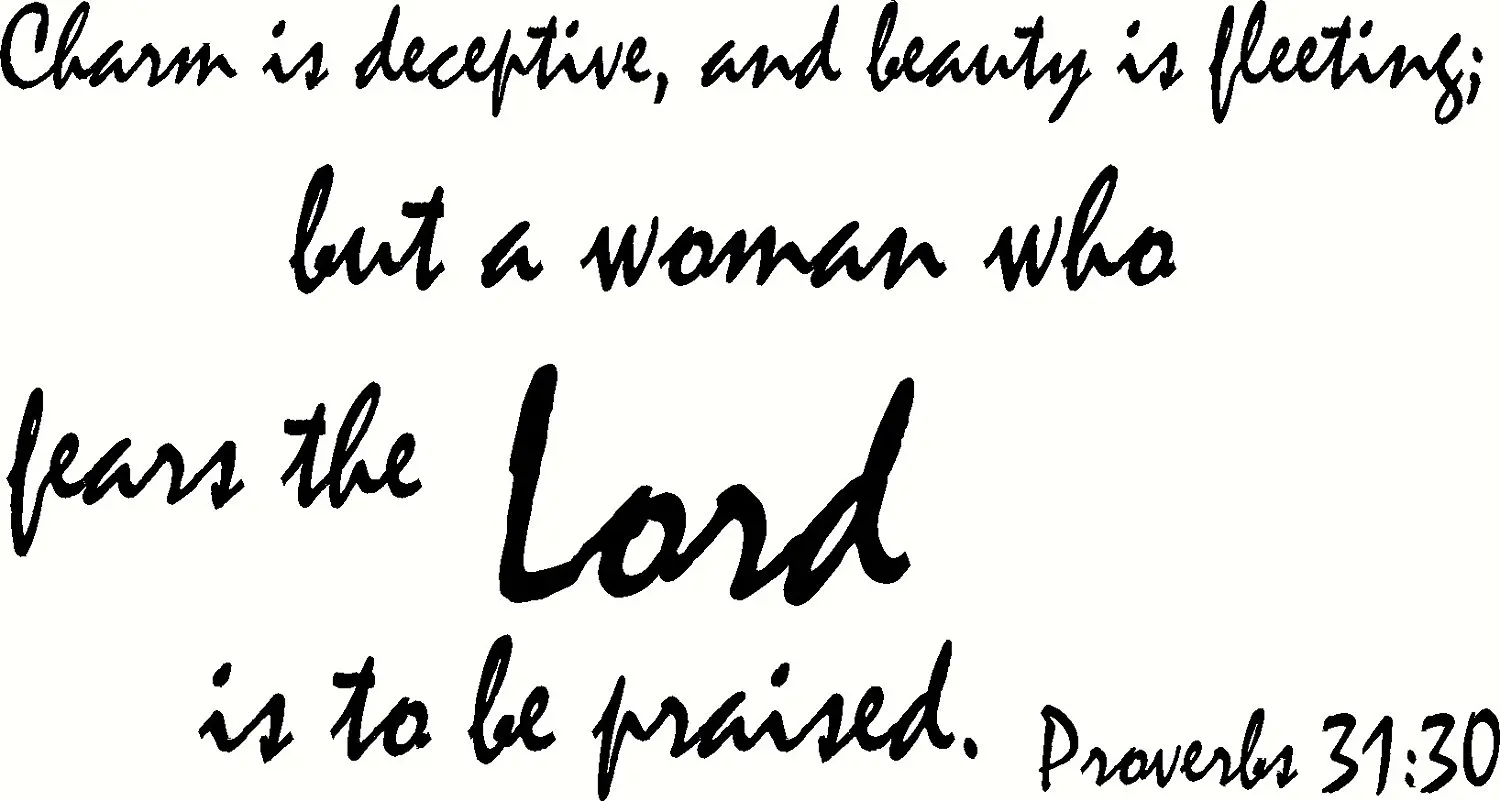 Charm is deceptive, and beauty is fleeting;
but a woman who
fears the Lord
is to be praised.
Proverbs 31:30